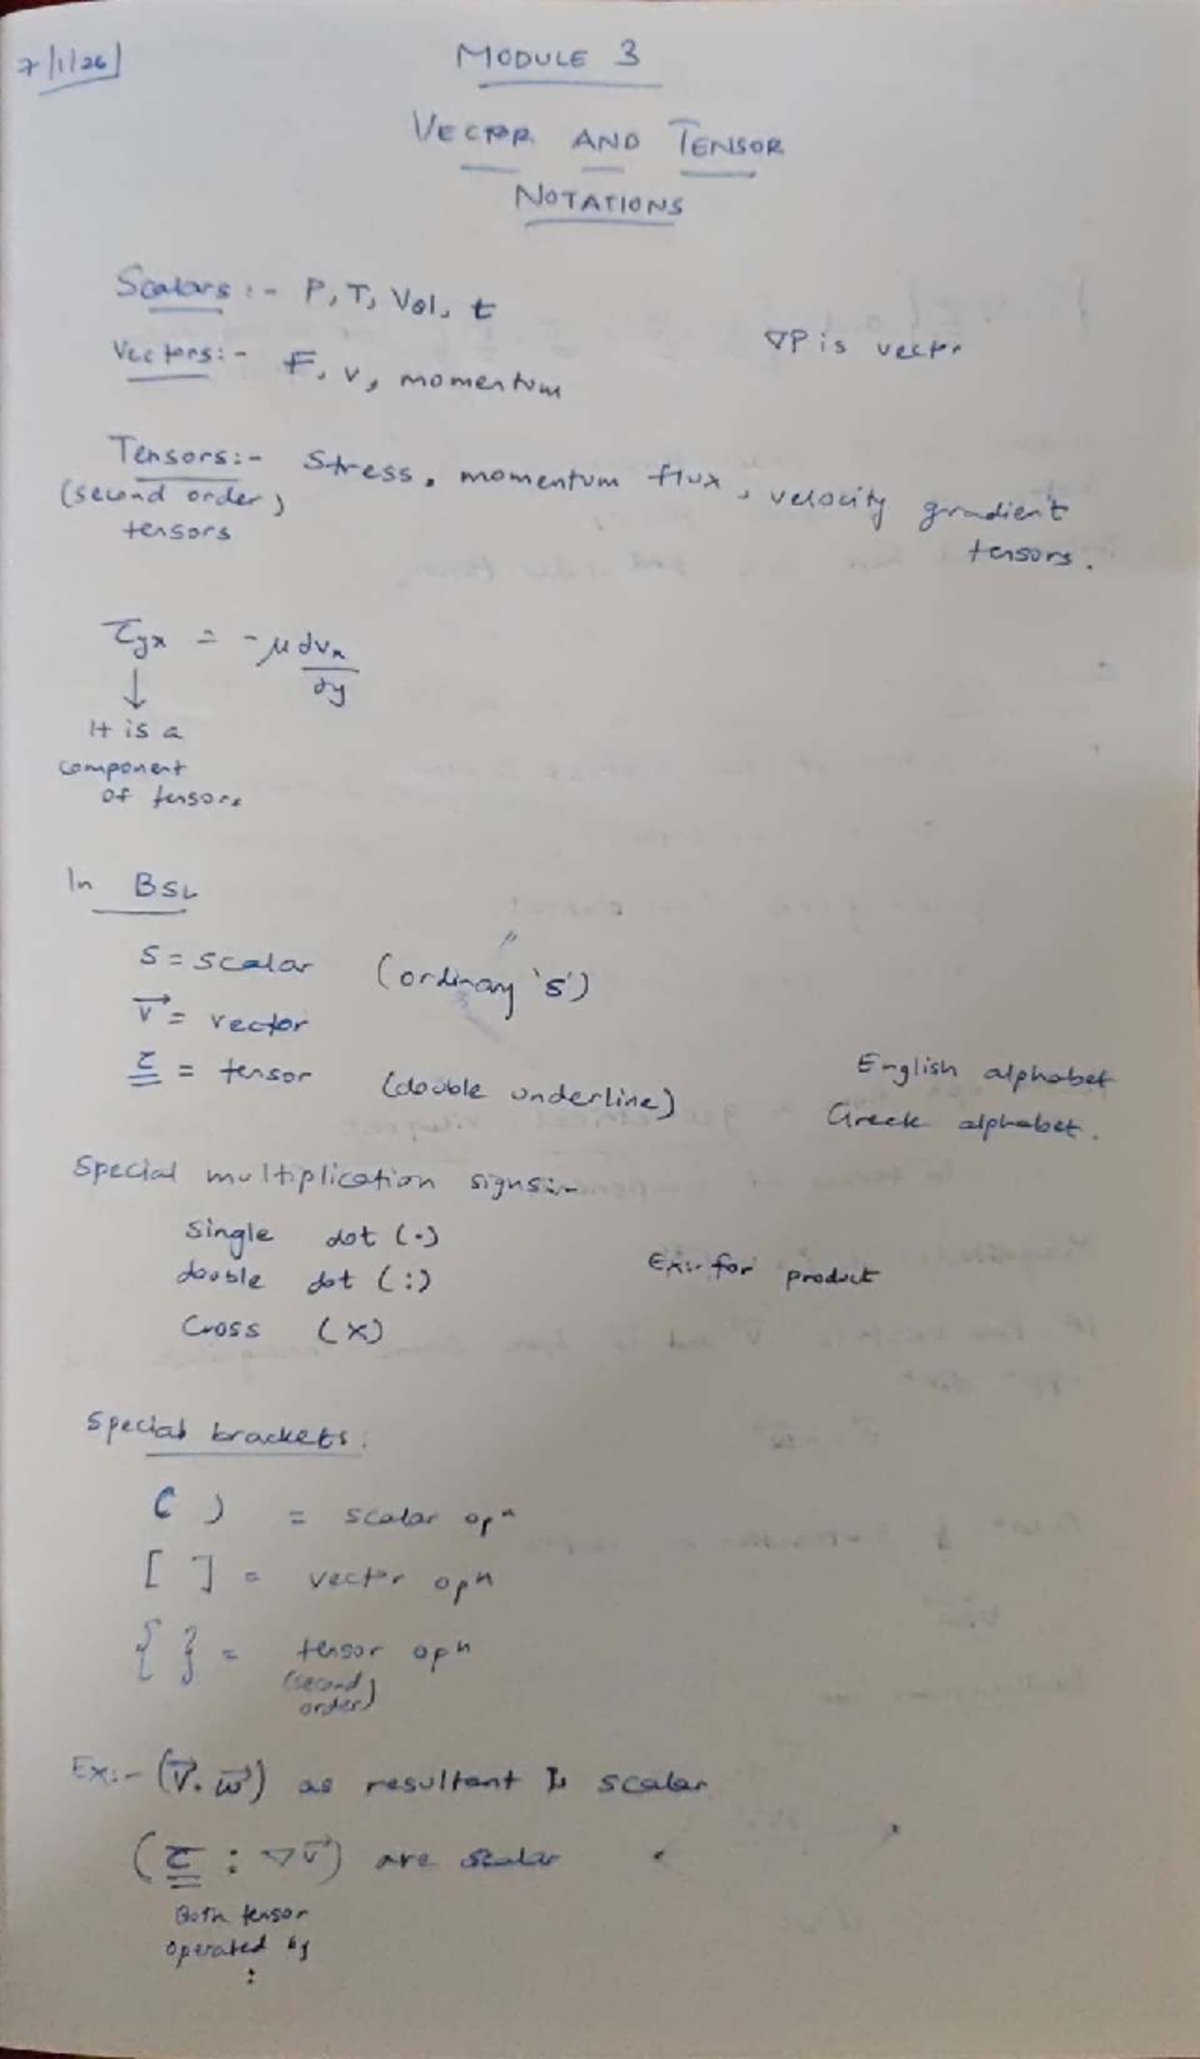 7/1/26
MODULE 3
VECTOR AND TENSOR
NOTATIONS
Scalars :- P, T, Vol, t
∇P is vector
Vectors:- F, v, momentum
Tensors:- Stress, momentum flux, velocity gradient
(second order)
tensors
tensors.
τyx = -μ ∂vx
∂y
↓
It is a
component
of tensors
In BSL
s = scalar (ordinary 's')
v⃗ = vector
τ = tensor (double underline)
English alphabet
Greek alphabet.
Special multiplication signs:-
Single dot (·)
double dot (:)
Ex:- for product
Cross (×)
Special brackets:
( ) = scalar opⁿ
[ ] = vector opⁿ
{ } = tensor opⁿ
(second
order)
Ex:- (v⃗. w⃗) as resultant is scalar
(τ : ∇v⃗) are scalar
Both tensor
operated by
: